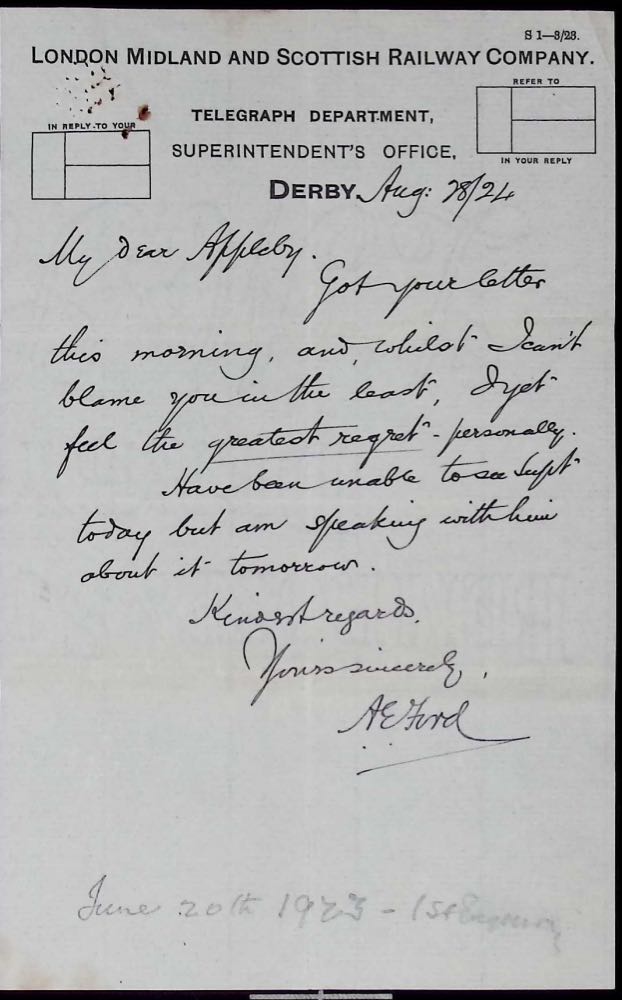 S 1—3/23.
LONDON MIDLAND AND SCOTTISH RAILWAY COMPANY.
REFER TO
TELEGRAPH DEPARTMENT,
IN REPLY TO YOUR
SUPERINTENDENT'S OFFICE,
IN YOUR REPLY
DERBY. Aug: 28/24
My Dear Appleby.
Got your letter
this morning, and, whilst I can't
blame you in the least, I yet
feel the greatest regret - personally.
Have been unable to see Supt
today but am speaking with him
about it tomorrow.
Kindest regards.
Yours sincerely,
A E Ford
June 20th 1923 - 1st